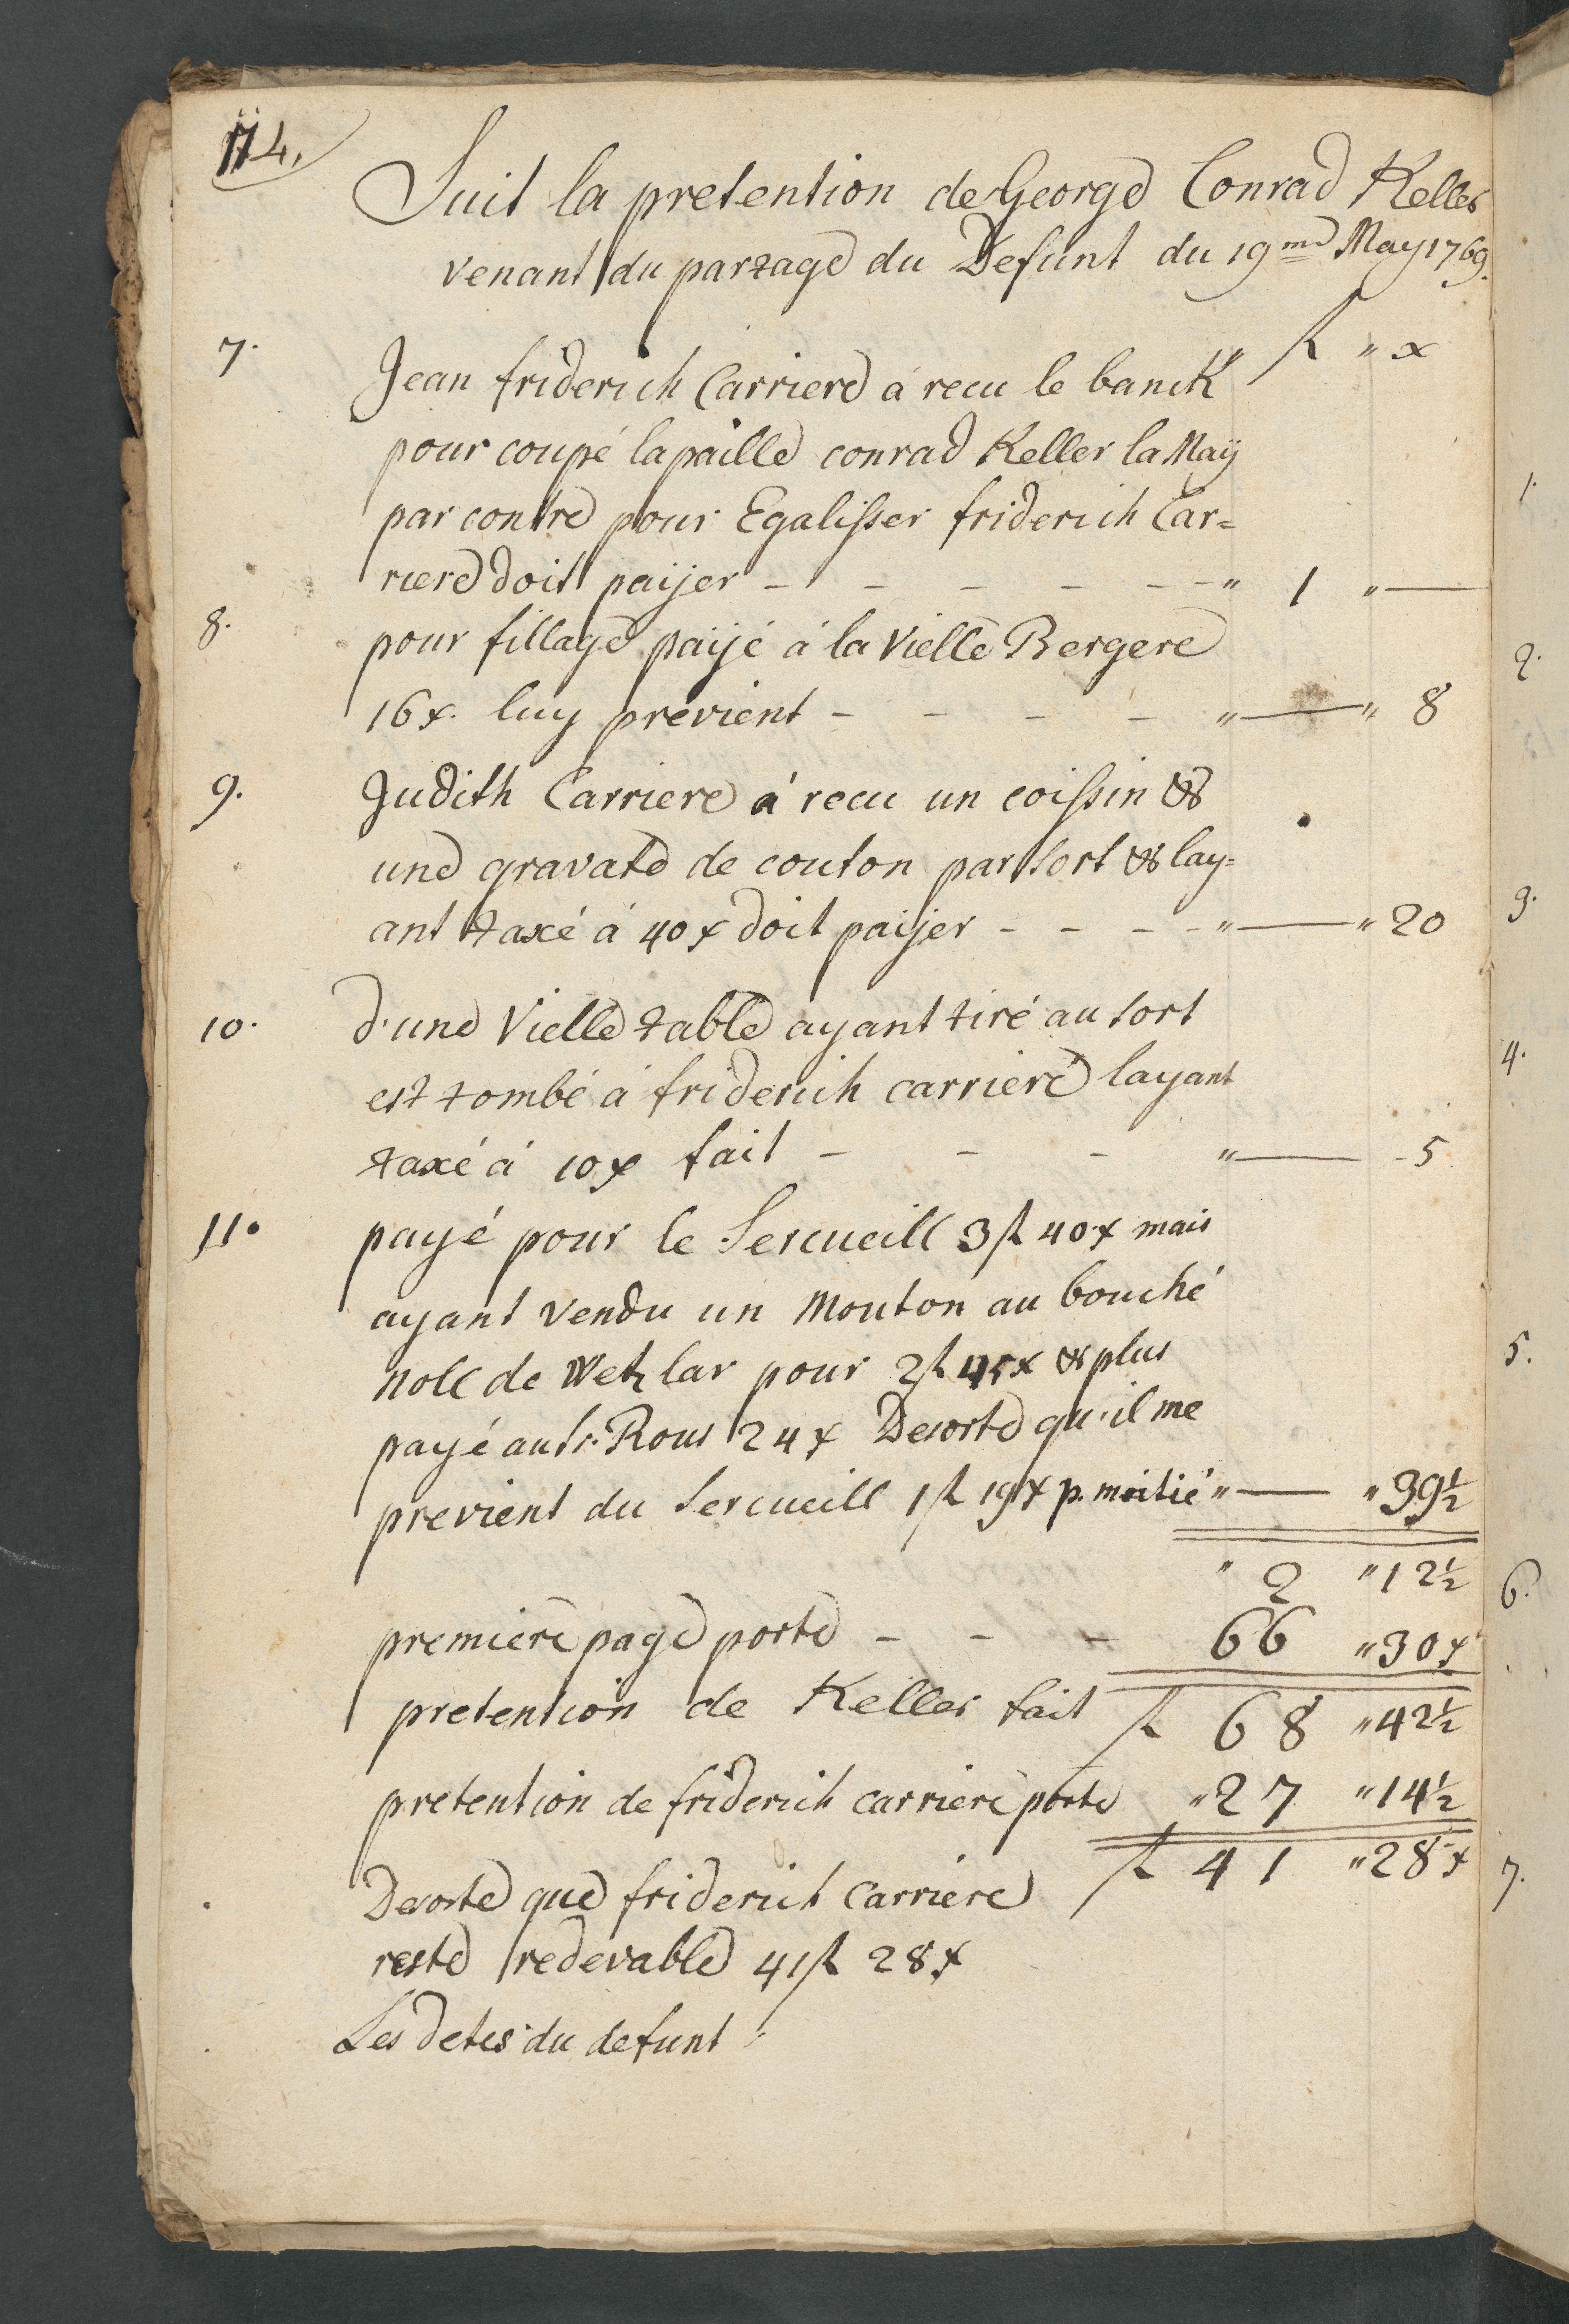 114.
Suit la pretention de George Conrad Keller
venant du partage du Defunt du 19me May 1769.
" fl " x
7. Jean friderich Carriere á recu le banck
pour coupé la paille conrad Keller la Maÿ
par contre pour Egalisser friderich Car=
riere doit païjer - - - - - - " 1 " —
8. pour fillage païjé á la Vielle Bergere
16 x. luy previent - - - - " — " 8
9. Judith Carriere á recu un coissin &
une gravate de couton par sort & lay=
ant taxé á 40 x doit païjer - - - - " — " 20
10. d'une Vielle table ayant tiré au sort
est tombé á friderich carriere layant
taxé á 10 x fait - - - " — - 5
11. payé pour le Sercueill 3 fl 40 x mais
ayant vendu un Mouton au bouché
Noll de Wetzlar pour 2 fl 45 x & plus
payé au Sr. Rous 24 x Desorte qu'il me
previent du Sercueill 1 fl 19 x p. moitié " — " 39½
" 2 " 12½
premiere page porte - - - 66 " 30 x
pretention de Keller fait fl 68 " 42½
pretention de friderich carriere porte " 27 " 14½
fl 41 " 28 x
Desorte que friderich Carriere
reste redevable 41 fl 28 x
Les detes du defunt
1.
2.
3.
4.
5.
6.
7.